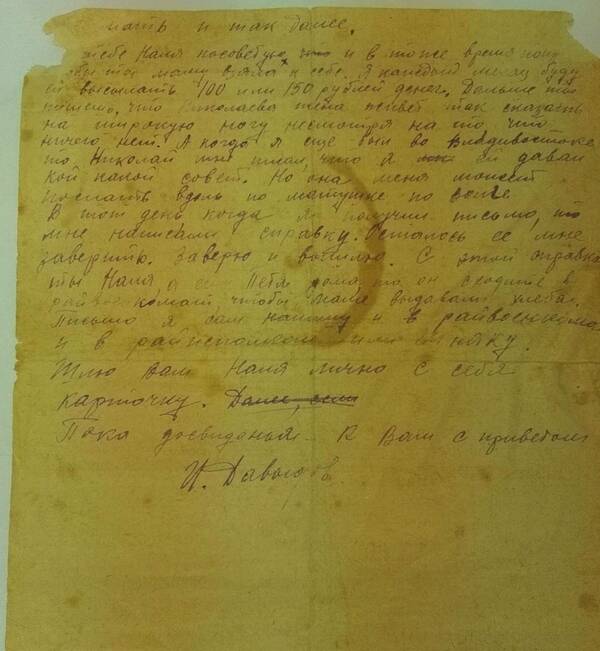 мать и так далее.
тебе Наля посоветую и в тоже время хочу
бы ты маму взяла к себе. Я каждый месяц буду
ей высылать 100 или 150 рублей денег. Дальше ты
пишешь, что Николаева жена живет так сказать
на широкую ногу несмотря на то что
ничего нет. А когда я еще был во Владивостоке
то Николай мне писал, что я ей давал
кой какой совет. Но она меня может
послать вдоль по матушке по Волге
В тот день когда я получил письмо, то
мне написали справку. Осталось ее мне
заверить. Заверю и вышлю. С этой справкой
ты Наля, а Петя дома то он сходите в
райвоенкомат, чтобы маме выдавали хлеба.
Письмо я сам напишу и в райвоенкомат
и в райисполком
Шлю Вам Наля лично с себя
карточку. Далее, если
Пока досвиданья. К Вам с приветом
И. Давыдов.